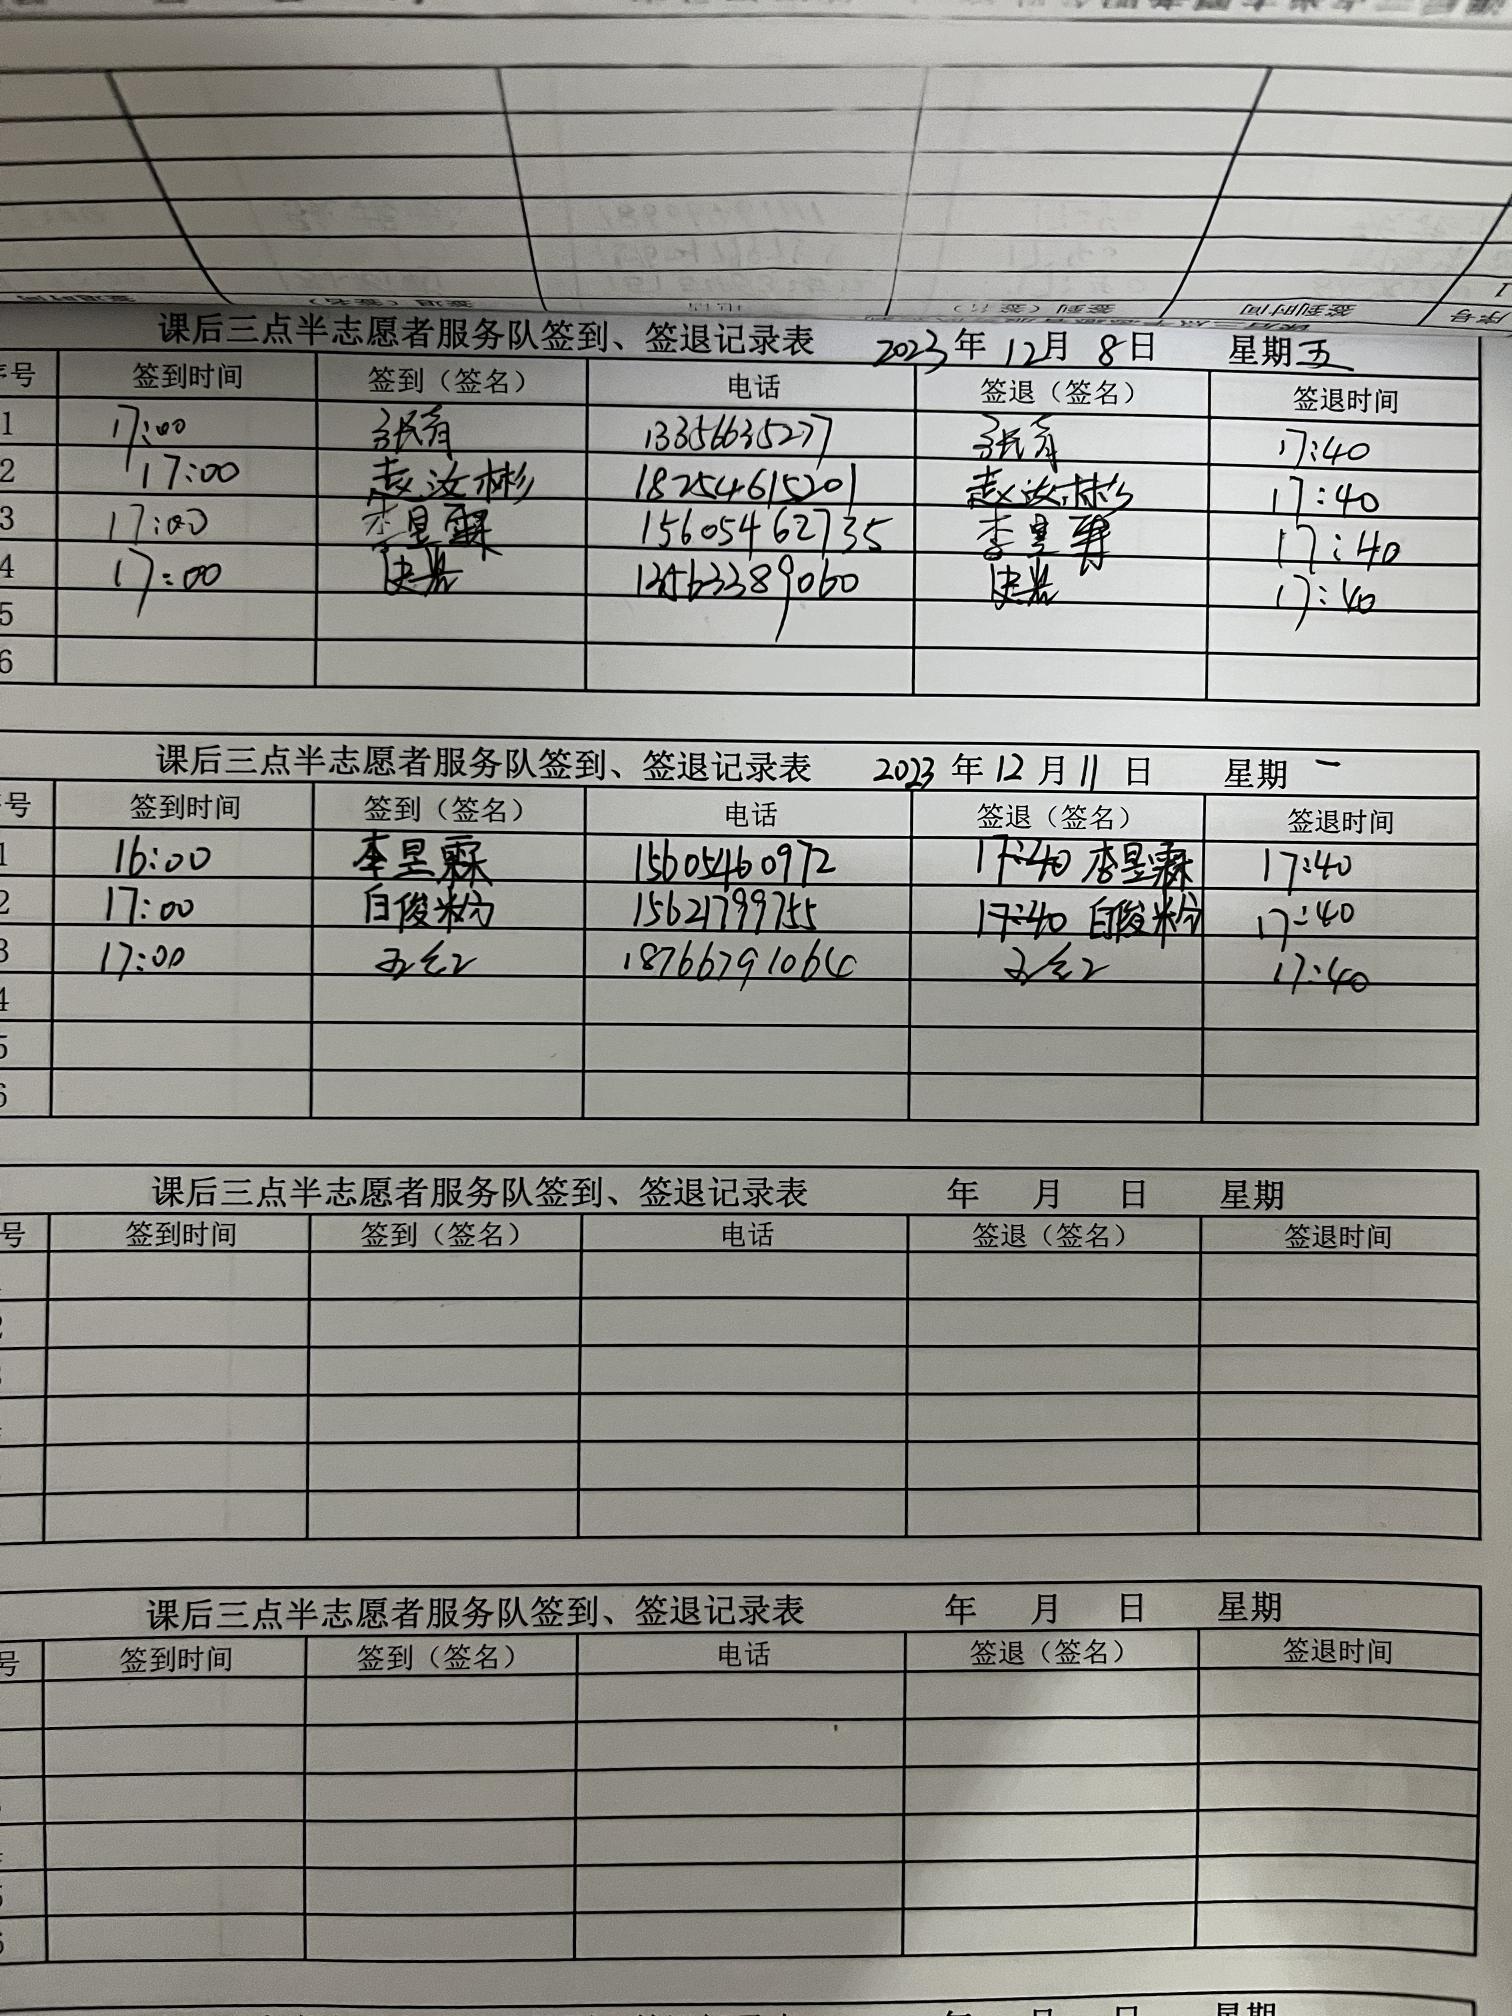 课后三点半志愿者服务队签到、签退记录表 2023年12月8日 星期五
序号 签到时间 签到（签名） 电话 签退（签名） 签退时间
1 17:00 13356635277 17:40
2 17:00 赵汝彬 18254615201 赵汝彬 17:40
3 17:00 李昱霖 15605462735 李昱霖 17:40
4 17:00 17:40
5
6
课后三点半志愿者服务队签到、签退记录表 2023年12月11日 星期一
号 签到时间 签到（签名） 电话 签退（签名） 签退时间
1 16:00 李昱霖 15605460972 17:40 李昱霖 17:40
2 17:00 白俊粉 15621799755 17:40 白俊粉 17:40
3 17:00 17:40
4
5
6
课后三点半志愿者服务队签到、签退记录表 年 月 日 星期
号 签到时间 签到（签名） 电话 签退（签名） 签退时间
2
课后三点半志愿者服务队签到、签退记录表 年 月 日 星期
号 签到时间 签到（签名） 电话 签退（签名） 签退时间
5
6
年 月 日 星期